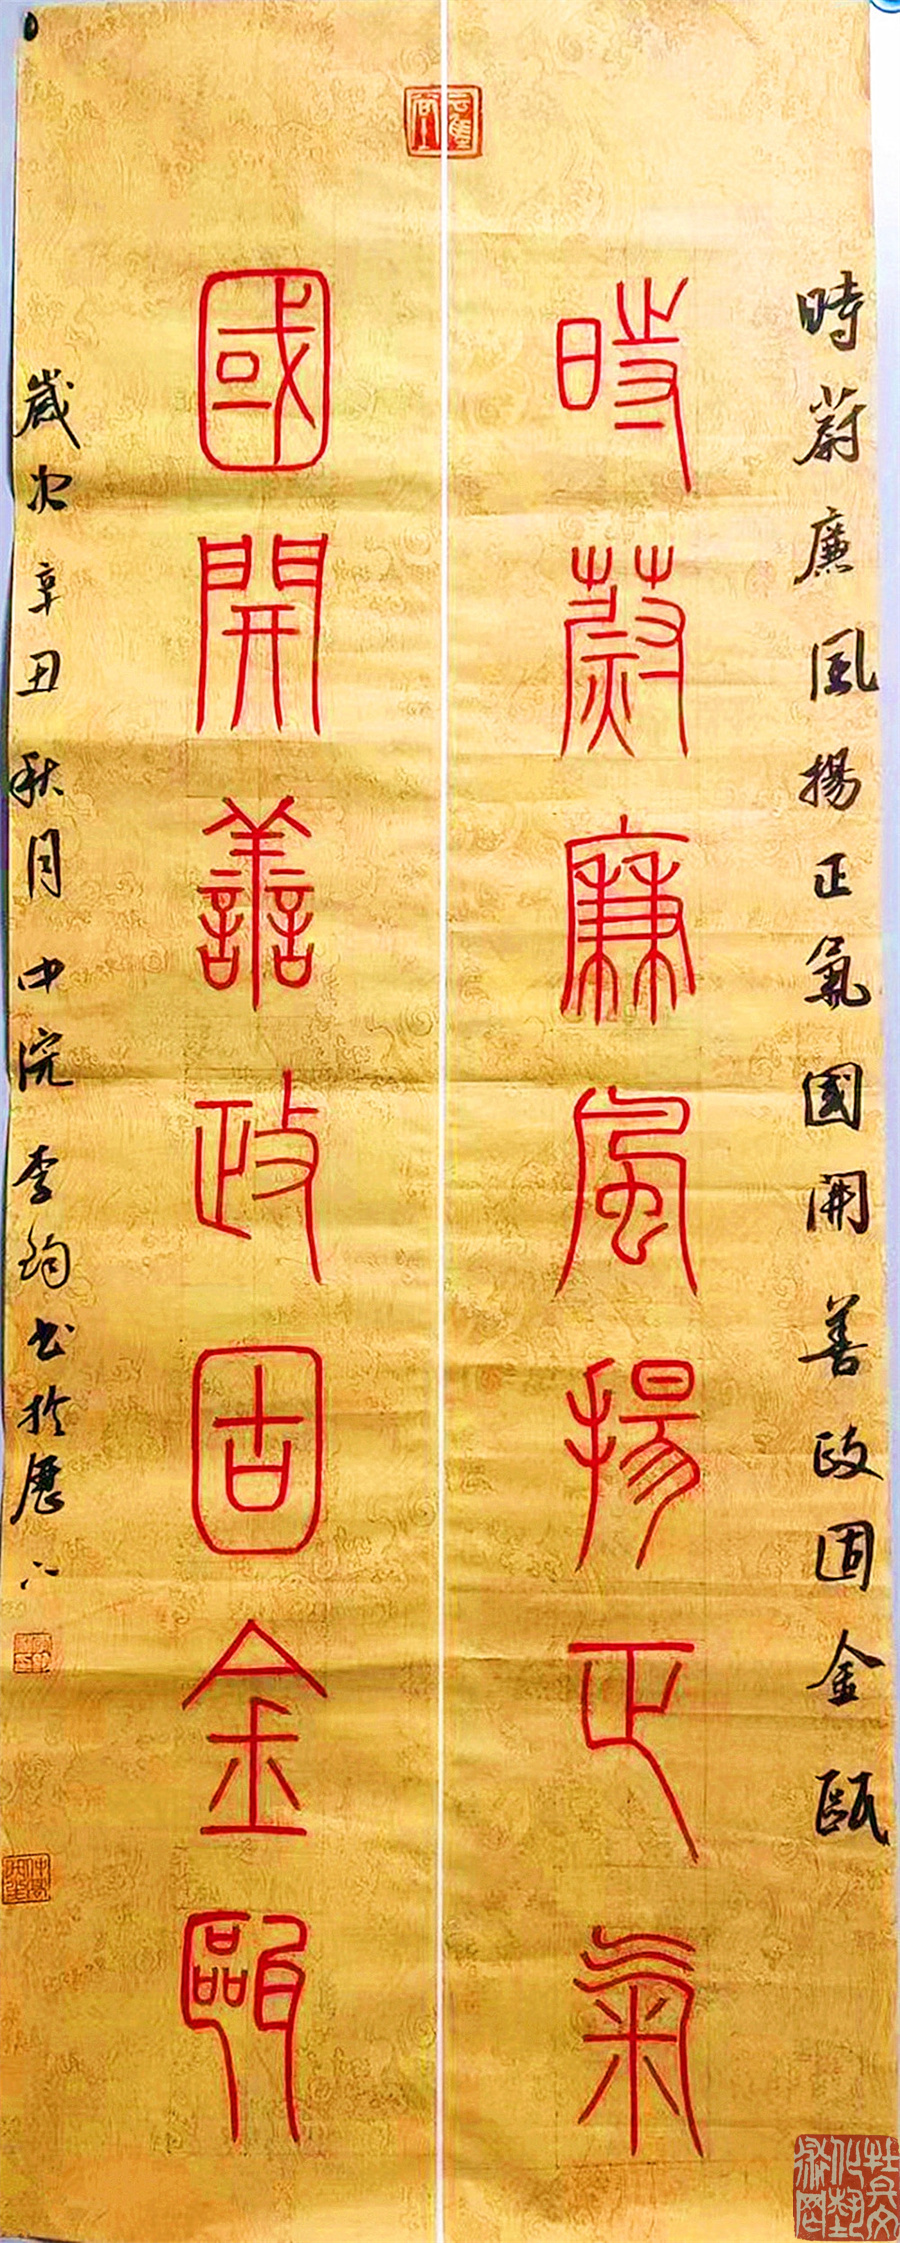 時蔚廉風揚正氣國開善政固金甌
時蔚廉風揚正氣
國開善政固金甌
歲次辛丑秋月中浣李鈞書於厦门